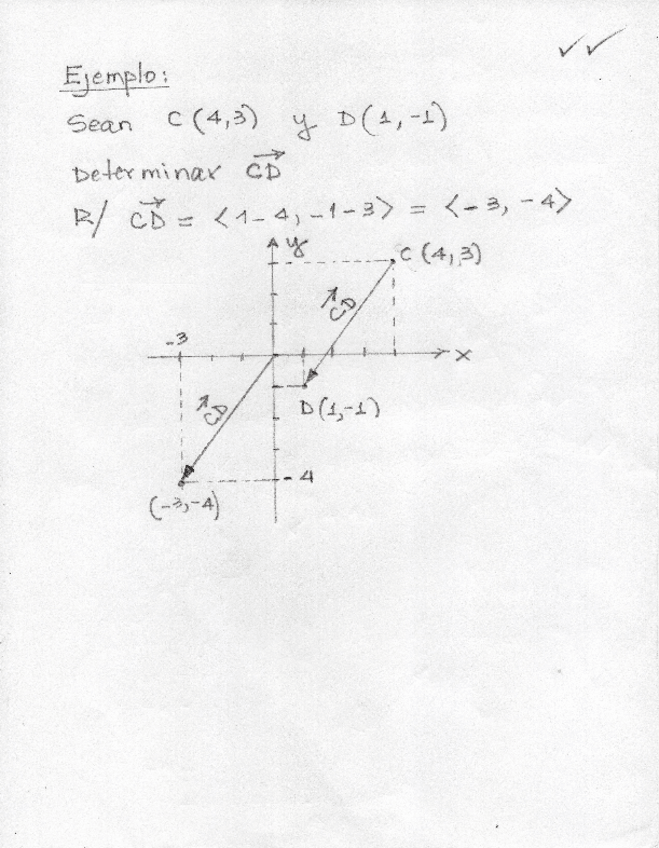 Ejemplo:
Sean C(4,3) y D(1,-1)
Determinar \overrightarrow{CD}
R/ \overrightarrow{CD} = ⟨1-4, -1-3⟩ = ⟨-3, -4⟩
y
C(4,3)
\overrightarrow{CD}
-3
x
\overrightarrow{CD}
D(1,-1)
-4
(-3,-4)